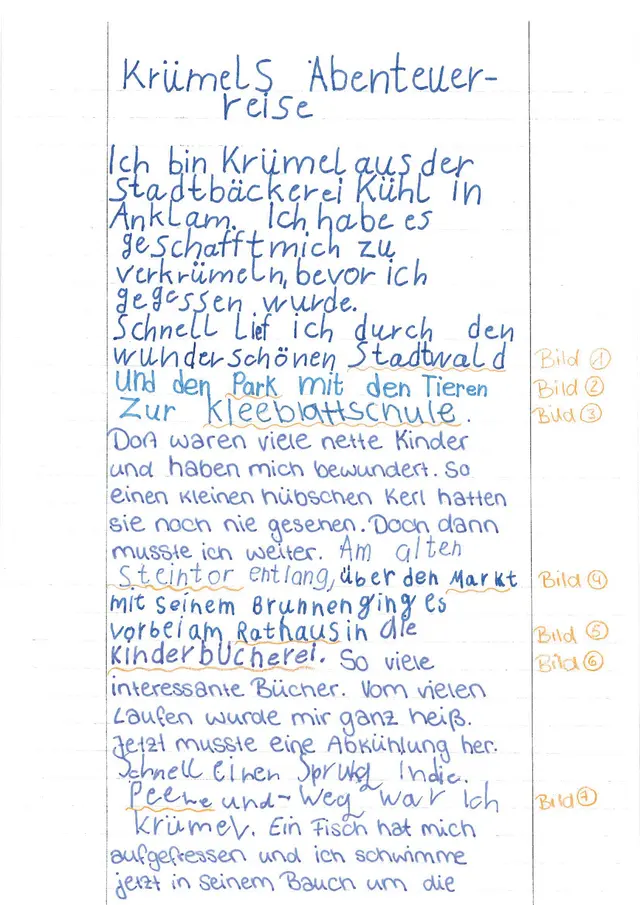 Krümels Abenteuer-
reise
Ich bin Krümel aus der
Stadtbäckerei Kühl in
Anklam. Ich habe es
geschafft mich zu
verkrümeln, bevor ich
gegessen wurde.
Schnell lief ich durch den
wunderschönen Stadtwald Bild 1
und den Park mit den Tieren Bild 2
Zur Kleeblattschule. Bild 3
Dort waren viele nette Kinder
und haben mich bewundert. So
einen kleinen hübschen Kerl hatten
sie noch nie gesehen. Doch dann
musste ich weiter. Am alten
Steintor entlang, über den Markt Bild 4
mit seinem Brunnen ging es
vorbei am Rathaus in die Bild 5
Kinderbücherei. So viele Bild 6
interessante Bücher. Vom vielen
Laufen wurde mir ganz heiß.
Jetzt musste eine Abkühlung her.
Schnell einen Sprung in die.
Peene und - Weg war ich Bild 7
Krümel. Ein Fisch hat mich
aufgefressen und ich schwimme
jetzt in seinem Bauch um die